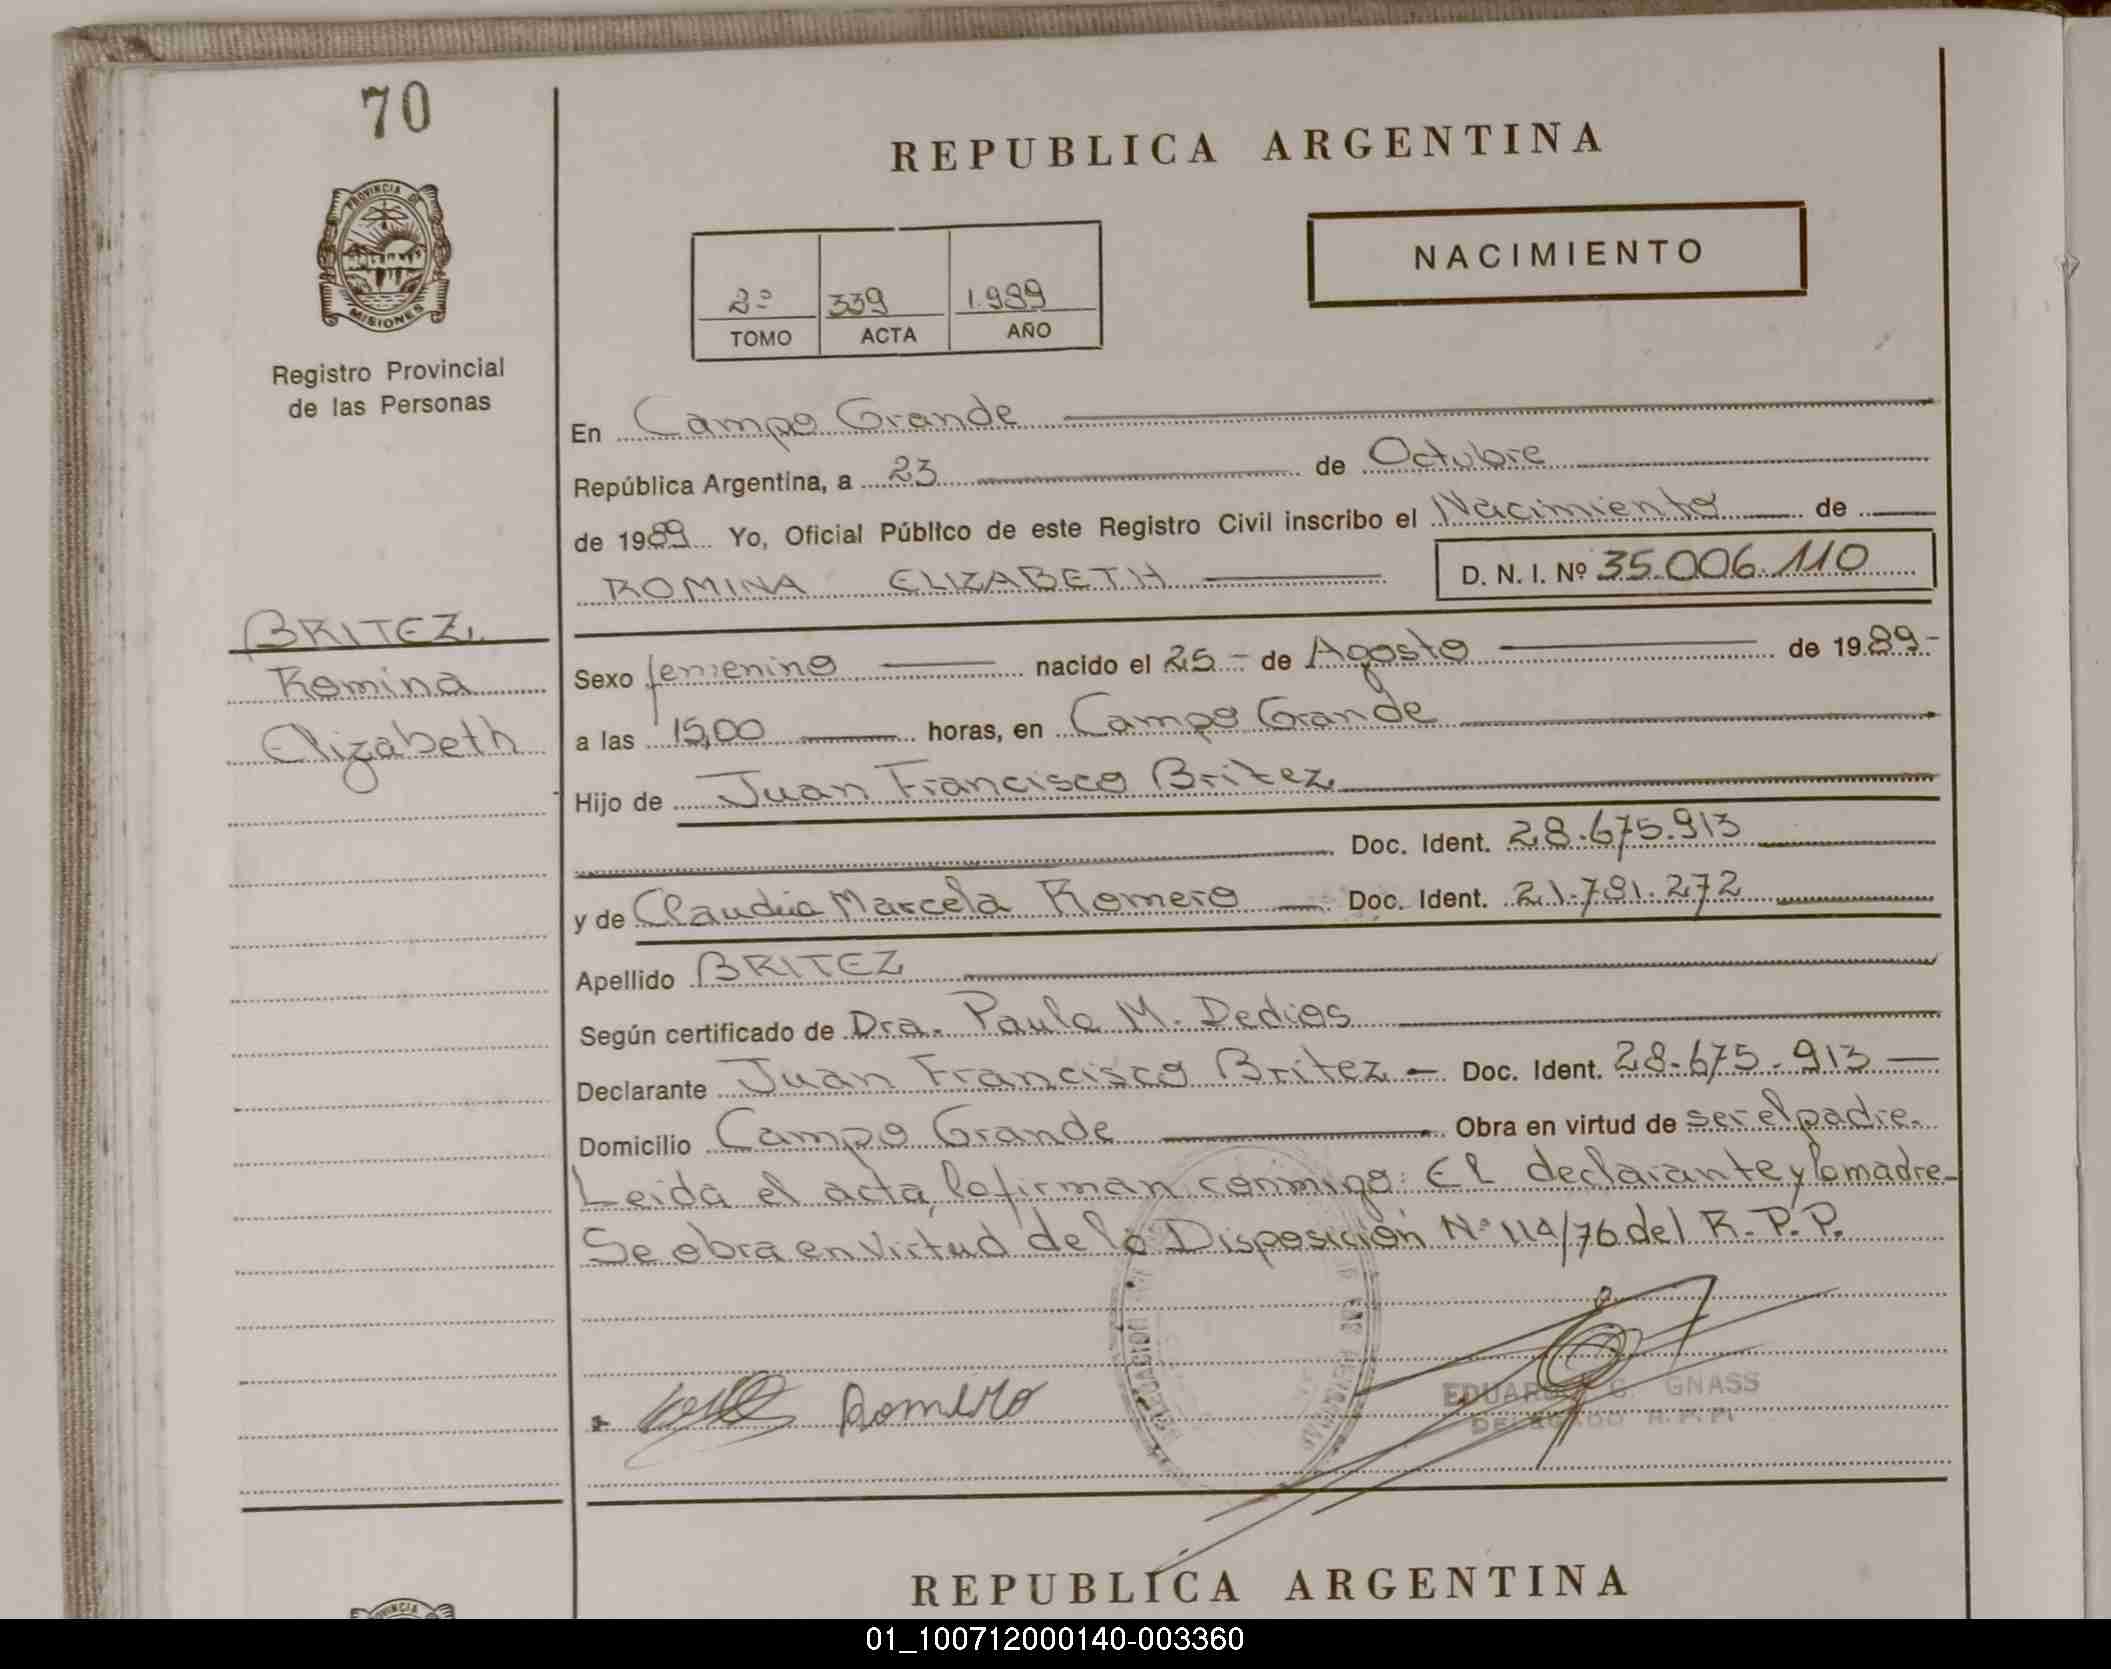 70
REPUBLICA ARGENTINA
PROVINCIA DE
MISIONES
Registro Provincial
de las Personas
NACIMIENTO
2º 339 1.989
TOMO ACTA AÑO
En Campo Grande
República Argentina, a 23 de Octubre
de 1989 Yo, Oficial Público de este Registro Civil inscribo el Nacimiento de
ROMINA ELIZABETH D. N. I. Nº 35.006.110
BRITEZ,
Romina
Elizabeth
Sexo femenino nacido el 25 - de Agosto de 1989-
a las 15,00 horas, en Campo Grande
Hijo de Juan Francisco Britez
Doc. Ident. 28.675.913
y de Claudia Marcela Romero Doc. Ident. 21.781.272
Apellido BRITEZ
Según certificado de Dra. Paula M. Dedios
Declarante Juan Francisco Britez - Doc. Ident. 28-675-913
Domicilio Campo Grande Obra en virtud de ser el padre.
Leida el acta, la firman conmigo: El declarante y la madre-
Se obra en virtud de la Disposición Nº 114/76 del R.P.P.
Romero
GNASS
REPUBLICA ARGENTINA
01_100712000140-003360